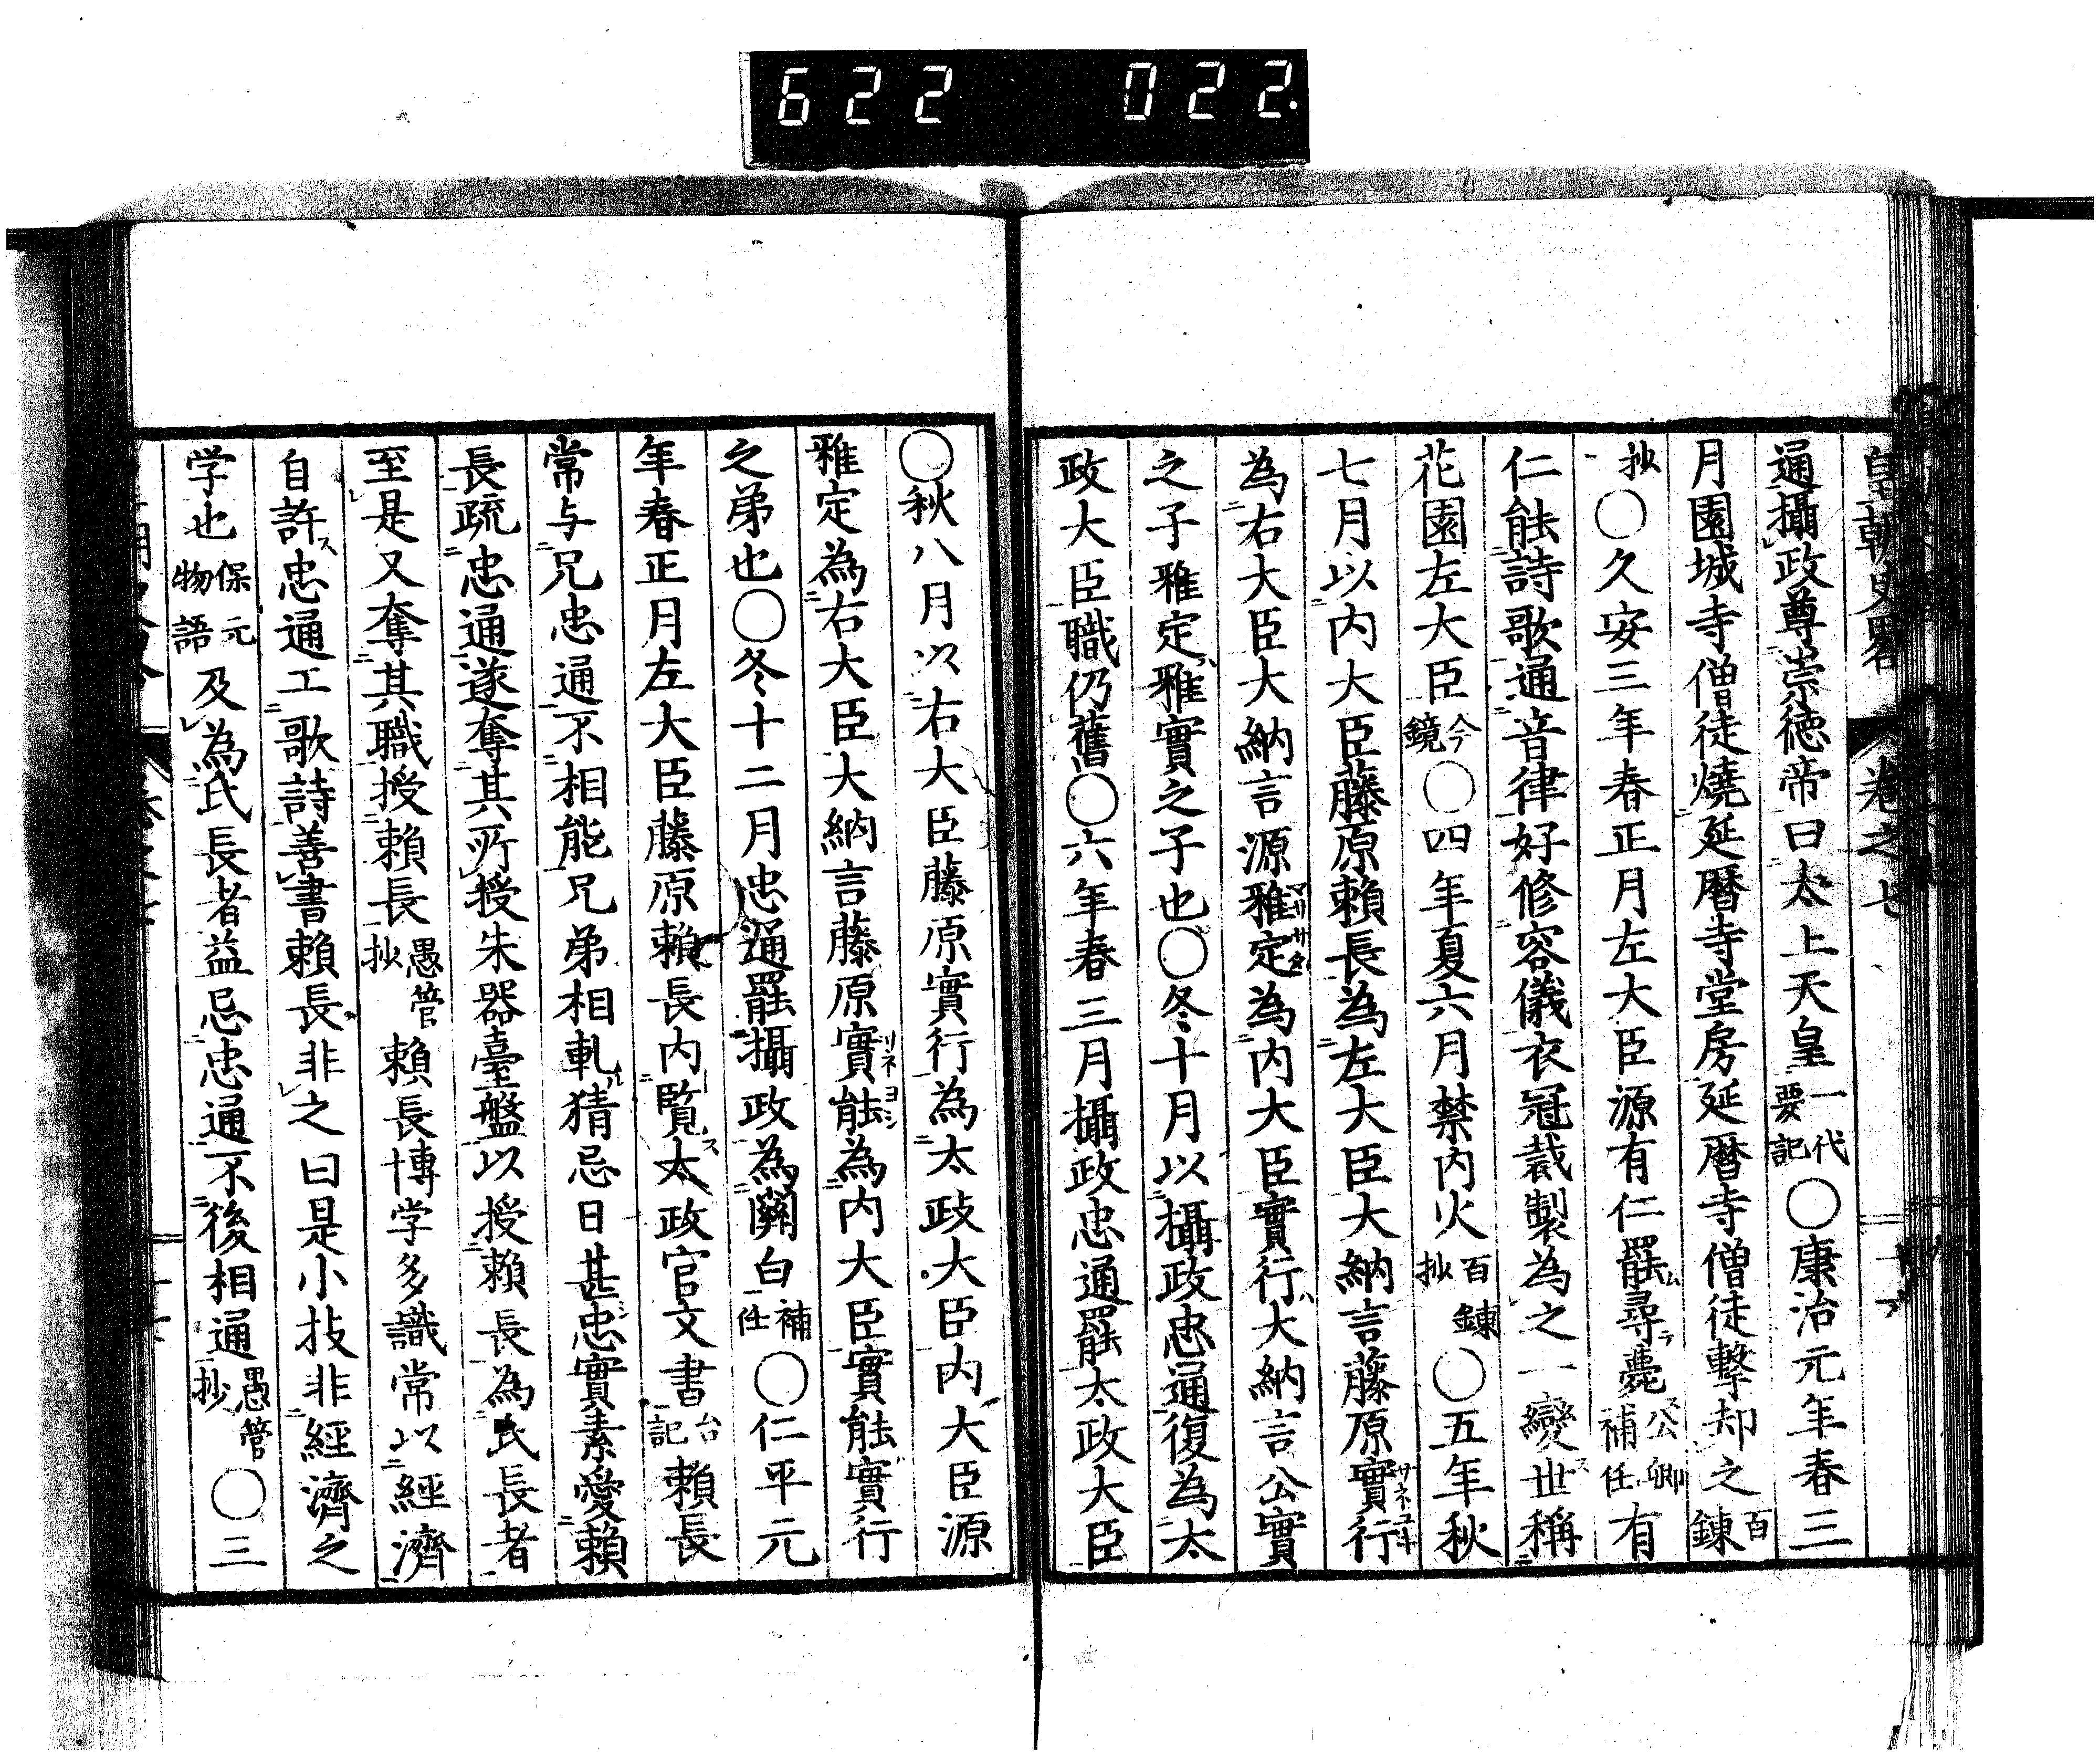 622 022
皇朝史畧 卷之七
通攝政尊崇徳帝曰太上天皇一代要記○康治元年春三
月園城寺僧徒燒延暦寺堂房延暦寺僧徒擊却之百錬
抄○久安三年春正月左大臣源有仁罷尋薨公卿補任有
仁能詩歌通音律好修容儀衣冠裁製為之一變世稱
花園左大臣今鏡○四年夏六月禁内火百錬抄○五年秋
七月以内大臣藤原頼長為左大臣大納言藤原實行
為右大臣大納言源雅定為内大臣實行大納言公實
之子雅定雅實之子也○冬十月以攝政忠通復為太
政大臣職仍舊○六年春三月攝政忠通罷太政大臣
○秋八月以右大臣藤原實行為太政大臣内大臣源
雅定為右大臣大納言藤原實能為内大臣實能實行
之弟也○冬十二月忠通罷攝政為關白補任○仁平元
年春正月左大臣藤原頼長内覧太政官文書台記頼長
常与兄忠通不相能兄弟相軋猜忌日甚忠實素愛頼
長疏忠通遂奪其所授朱器臺盤以授頼長為氏長者
至是又奪其職授頼長愚管抄頼長博学多識常以經濟
自許忠通工歌詩善書頼長非之曰是小技非經濟之
学也保元物語及為氏長者益忌忠通不後相通愚管抄○三